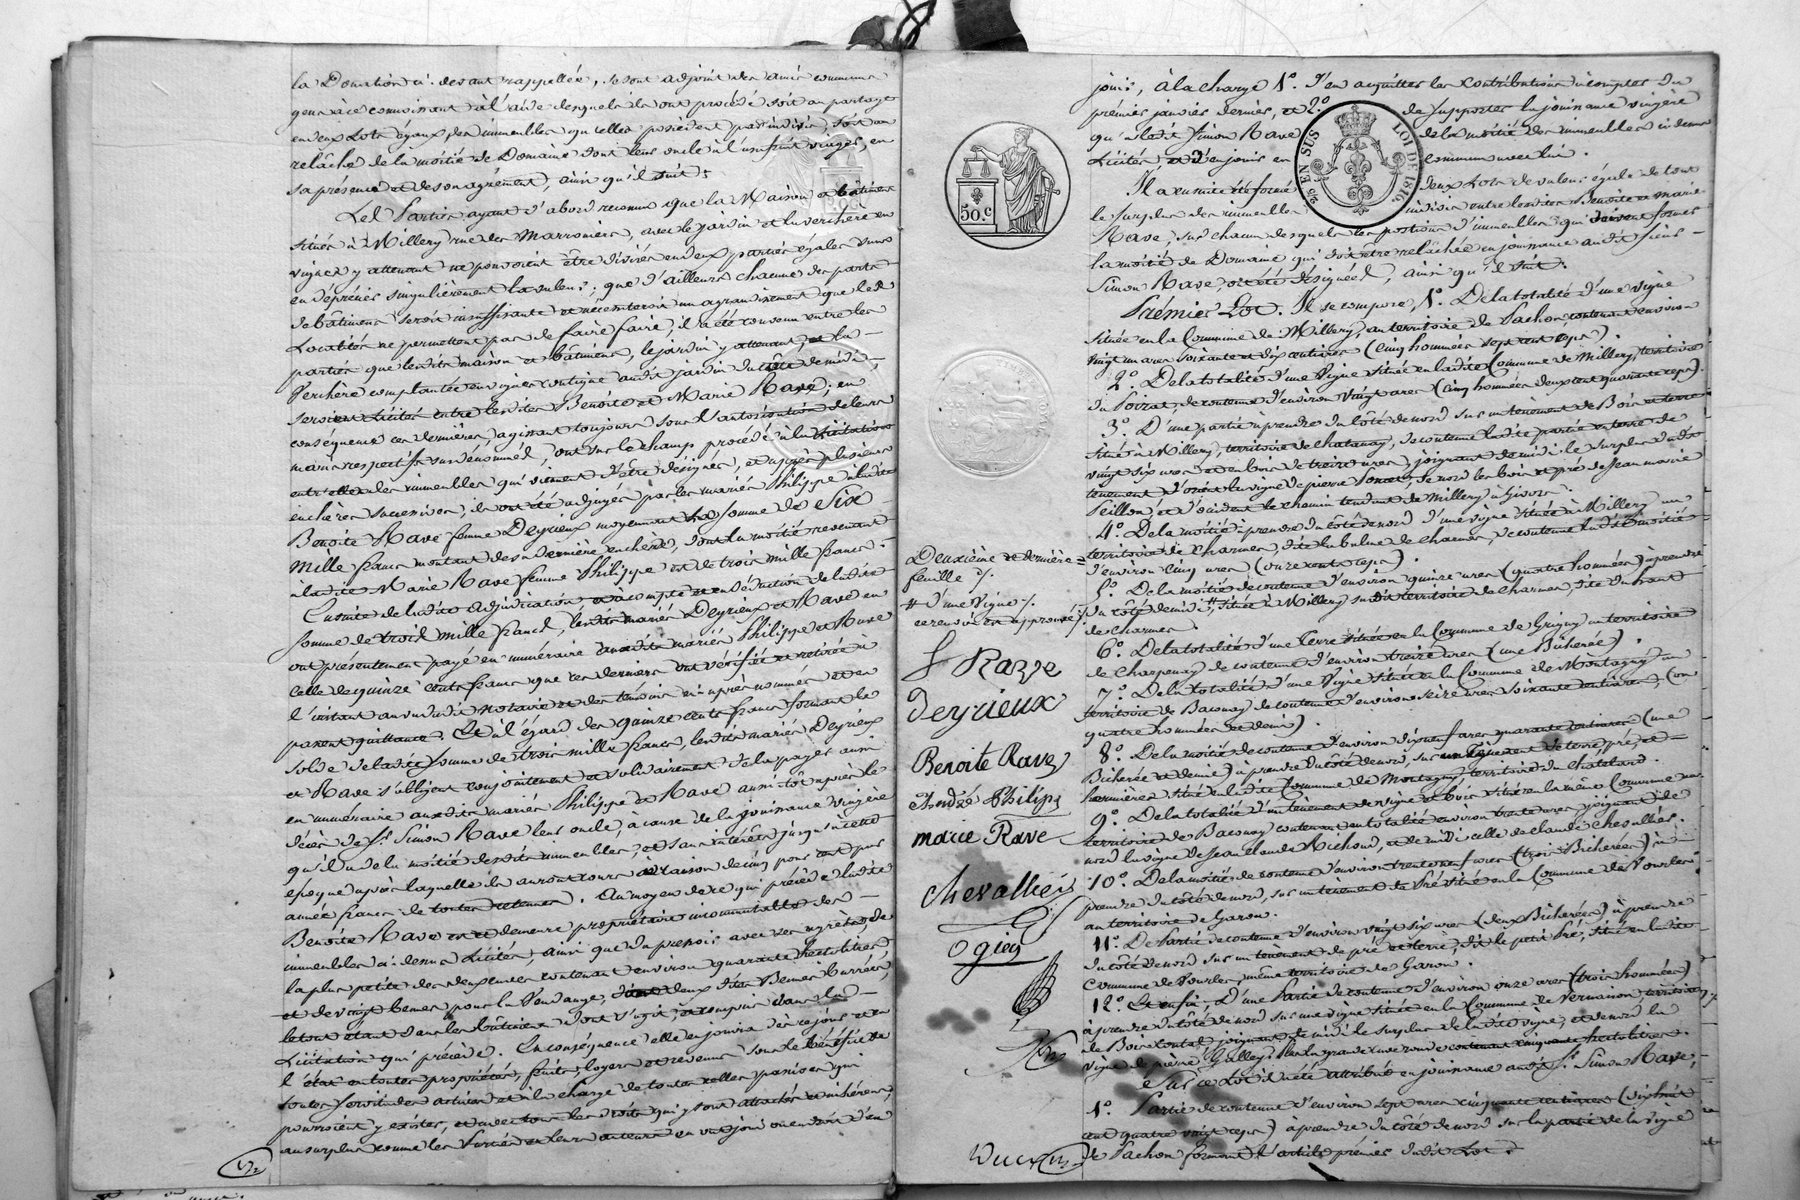 la Donation ci-devant rappellée, se sont adjoint des amis communs
gens à ce connoissant à l'aide desquels ils ont procédé soit au partage
en deux Lots égaux des immeubles qu'elles possèdent par indivis, soit au
relâche de la moitié de Domaine dont leur oncle a l'usufruit viager, en
sa présence et de son agrément, ainsi qu'il suit :
Les Parties ayant d'abord reconnu que la Maison et bâtiment
situés à Millery rue des Marronniers, avec le jardin et la verchère en
vignes y attenant ne pouvoient être divisés en deux parties égales sans
en déprécier singulièrement la valeur ; que d'ailleurs chacune des parts
de bâtimens seroit insuffisante et nécessiteroit un agrandissement que les
Localités ne permettent pas de faire faire, il a été convenu entre les
parties que lesdits maison et bâtimens, le jardin y attenant, et la
Verchère complantée en vignes contigue audit jardin du côté de midi,
seroient licités entre lesdites Benoite et Marie Rave ; en
conséquence ces dernières, agissant toujours sous l'autorisation de leurs
maris respectifs susdénommés, ont sur le champ procédé à la licitation
entr'elles des immeubles qui viennent d'être désignés, et après plusieurs
enchères successives, ils ont été adjugés par les mariés Philippe à ladite
Benoite Rave femme Deyrieux moyennant la somme de Six
Mille francs montant de sa dernière enchère, dont la moitié revenant
à ladite Marie Rave femme Philippe est de trois mille francs.
Ensuite de ladite adjudication et à compte et en déduction de ladite
somme de trois mille francs, lesdits mariés Deyrieux et Rave en
ont présentement payé en numéraire auxdits mariés Philippe et Rave
celle de quinze cents francs que ces derniers ont vérifiée et retirée à
l'instant au vu dudit notaire et des témoins ci-après nommés et en
passent quittance. Et à l'égard des quinze cents francs formant le
solde de ladite somme de trois mille francs, lesdits mariés Deyrieux
et Rave s'obligent conjointement et solidairement de la payer aussi
en numéraire auxdits mariés Philippe et Rave aussi-tôt après le
décès de Sr. Simon Rave leur oncle, à cause de la jouissance viagère
qu'il a de la moitié desdits immeubles, et sans intérêts jusqu'à cette
époque après laquelle ils auront cours à raison de cinq pour cent par
année francs de toutes retenues. Au moyen de ce qui précède ladite
Benoite Rave est et demeure propriétaire incommutable des
immeubles ci-dessus licités, ainsi que du pressoir avec ses agrès, de
la plus petite des deux cuves contenant environ quarante hectolitres,
et de vingt bennes pour la Vendange, deux dites Bennes barrées,
le tout étant dans les bâtimens dont s'agit, et compris dans la
Licitation qui précède. En conséquence elle en jouira dès ce jour et en
l'état en toutes propriétés, fruits, loyers et revenus sous le bénéfice de
toutes servitudes actives et à la charge de toutes celles passives qui
pourroient y exister, et avec tous les droits qui y sont attachés et inhérens,
au surplus comme les Parties et leurs auteurs en ont joui ou en droit d'en
joui, à la charge 1.° d'en acquitter les contributions à compter du
premier janvier dernier, et 2.° de supporter la jouissance viagère
qu'a ledit Simon Rave de la moitié des immeubles ci-dessus
licités et d'en jouir en commun avec lui.
Il a ensuite été formé deux Lots de valeur égale de tout
le surplus des immeubles indivis entre lesdites Benoite et Marie
Rave, sur chacun desquels les portions d'immeubles qui doivent former
la moitié de Domaine qui doit être relâchée en jouissance audit sieur
Simon Rave, ont été désignées, ainsi qu'il suit.
Premier Lot. Il se compose, 1.° De la totalité d'une vigne
située en la Commune de Millery, au territoire de Pachon, contenant environ
vingt un ares soixante et dix centiares (cinq hommées sept cent ceps).
2.° De la totalité d'une Vigne située en ladite Commune de Millery, territoire
du Poizat, de contenue d'environ vingt ares (cinq hommées deux cent quarante ceps).
3.° D'une partie à prendre du côté de nord sur un tènement de Bois et terre
situé à Millery, territoire de Chatanay, de contenue ladite partie en terre de
vingt six ares et en bois de treize ares, joignant de midi le surplus dudit
tènement, d'orient la vigne de pierre , de nord les bois et pré de Jean marie
Peillon, et d'occident le chemin tendant de Millery à Givors.
4.° De la moitié à prendre du côté de nord d'une vigne située à Millery au
territoire de Charmes, dite la balme de Charmes, de contenue ladite moitié
d'environ cinq ares (onze cent ceps).
5.° De la moitié de contenue d'environ quinze ares (quatre hommées) à prendre
du côté de midi #, située à Millery susdit territoire de Charmes, dite du haut
de Charmes.
6.° De la totalité d'une Terre située en la Commune de Grigny au territoire
de Charpenay de contenue d'environ treize ares (une Bicherée).
7.° De la totalité d'une Vigne située en la Commune de Montagny au
territoire de Baconay de contenue d'environ seize ares soixante centiares, (ou
quatre hommées et demi).
8.° De la moitié de contenue d'environ dix neuf ares quarante centiares (une
Bicherée et demie) à prendre du côté de nord, sur un tènement de terre, pré, et
hermières situé en ladite Commune de Montagny, territoire du Chatelard.
9.° De la totalité d'un tènement de vigne et bois situé en la même Commune au
territoire de Baconay contenant en totalité environ trente ares joignant de
nord la vigne de Jean claude Richoud, et de midi celle de claude Chevallier.
10.° De la moitié de contenue d'environ trente neuf ares (trois Bicherées) à
prendre du côté de nord, sur un tènement de Pré situé en la Commune de Vourles
au territoire de Garon.
11.° De Partie de contenue d'environ vingt six ares (deux Bicherées) à prendre
du côté de nord sur un tènement de pré et terre, dit le petit Pré, situé en ladite
Commune de Vourles, même territoire de Garon.
12.° Et enfin, D'une Partie de contenue d'environ onze ares (trois hommées)
à prendre du côté de nord sur une vigne située en la Commune de Vernaison, territoire
de Bois contal, joignant de midi le surplus de ladite vigne, et de nord la
vigne de pierre Galley. Plus la grande cuve ronde contenant cinquante hectolitres.
Sur ce Lot il a été attribué en jouissance audit Sr. Simon Rave,
1.° Partie de contenue d'environ sept ares cinquante centiares (dix huit
cent quatre vingt ceps) à prendre du côté de nord sur la partie de la Vigne
de Pachon formant l'article premier dudit Lot.
2/5 EN SUS
LOI DE 1816
50.c
Deuxième et dernière
feuille ./.
# d'une Vigne ./.
ce renvoi est approuvé ./.
S Rave
Deyrieux
Benoite Rave
André Philipe
marie Rave
Chevallier
Ogier